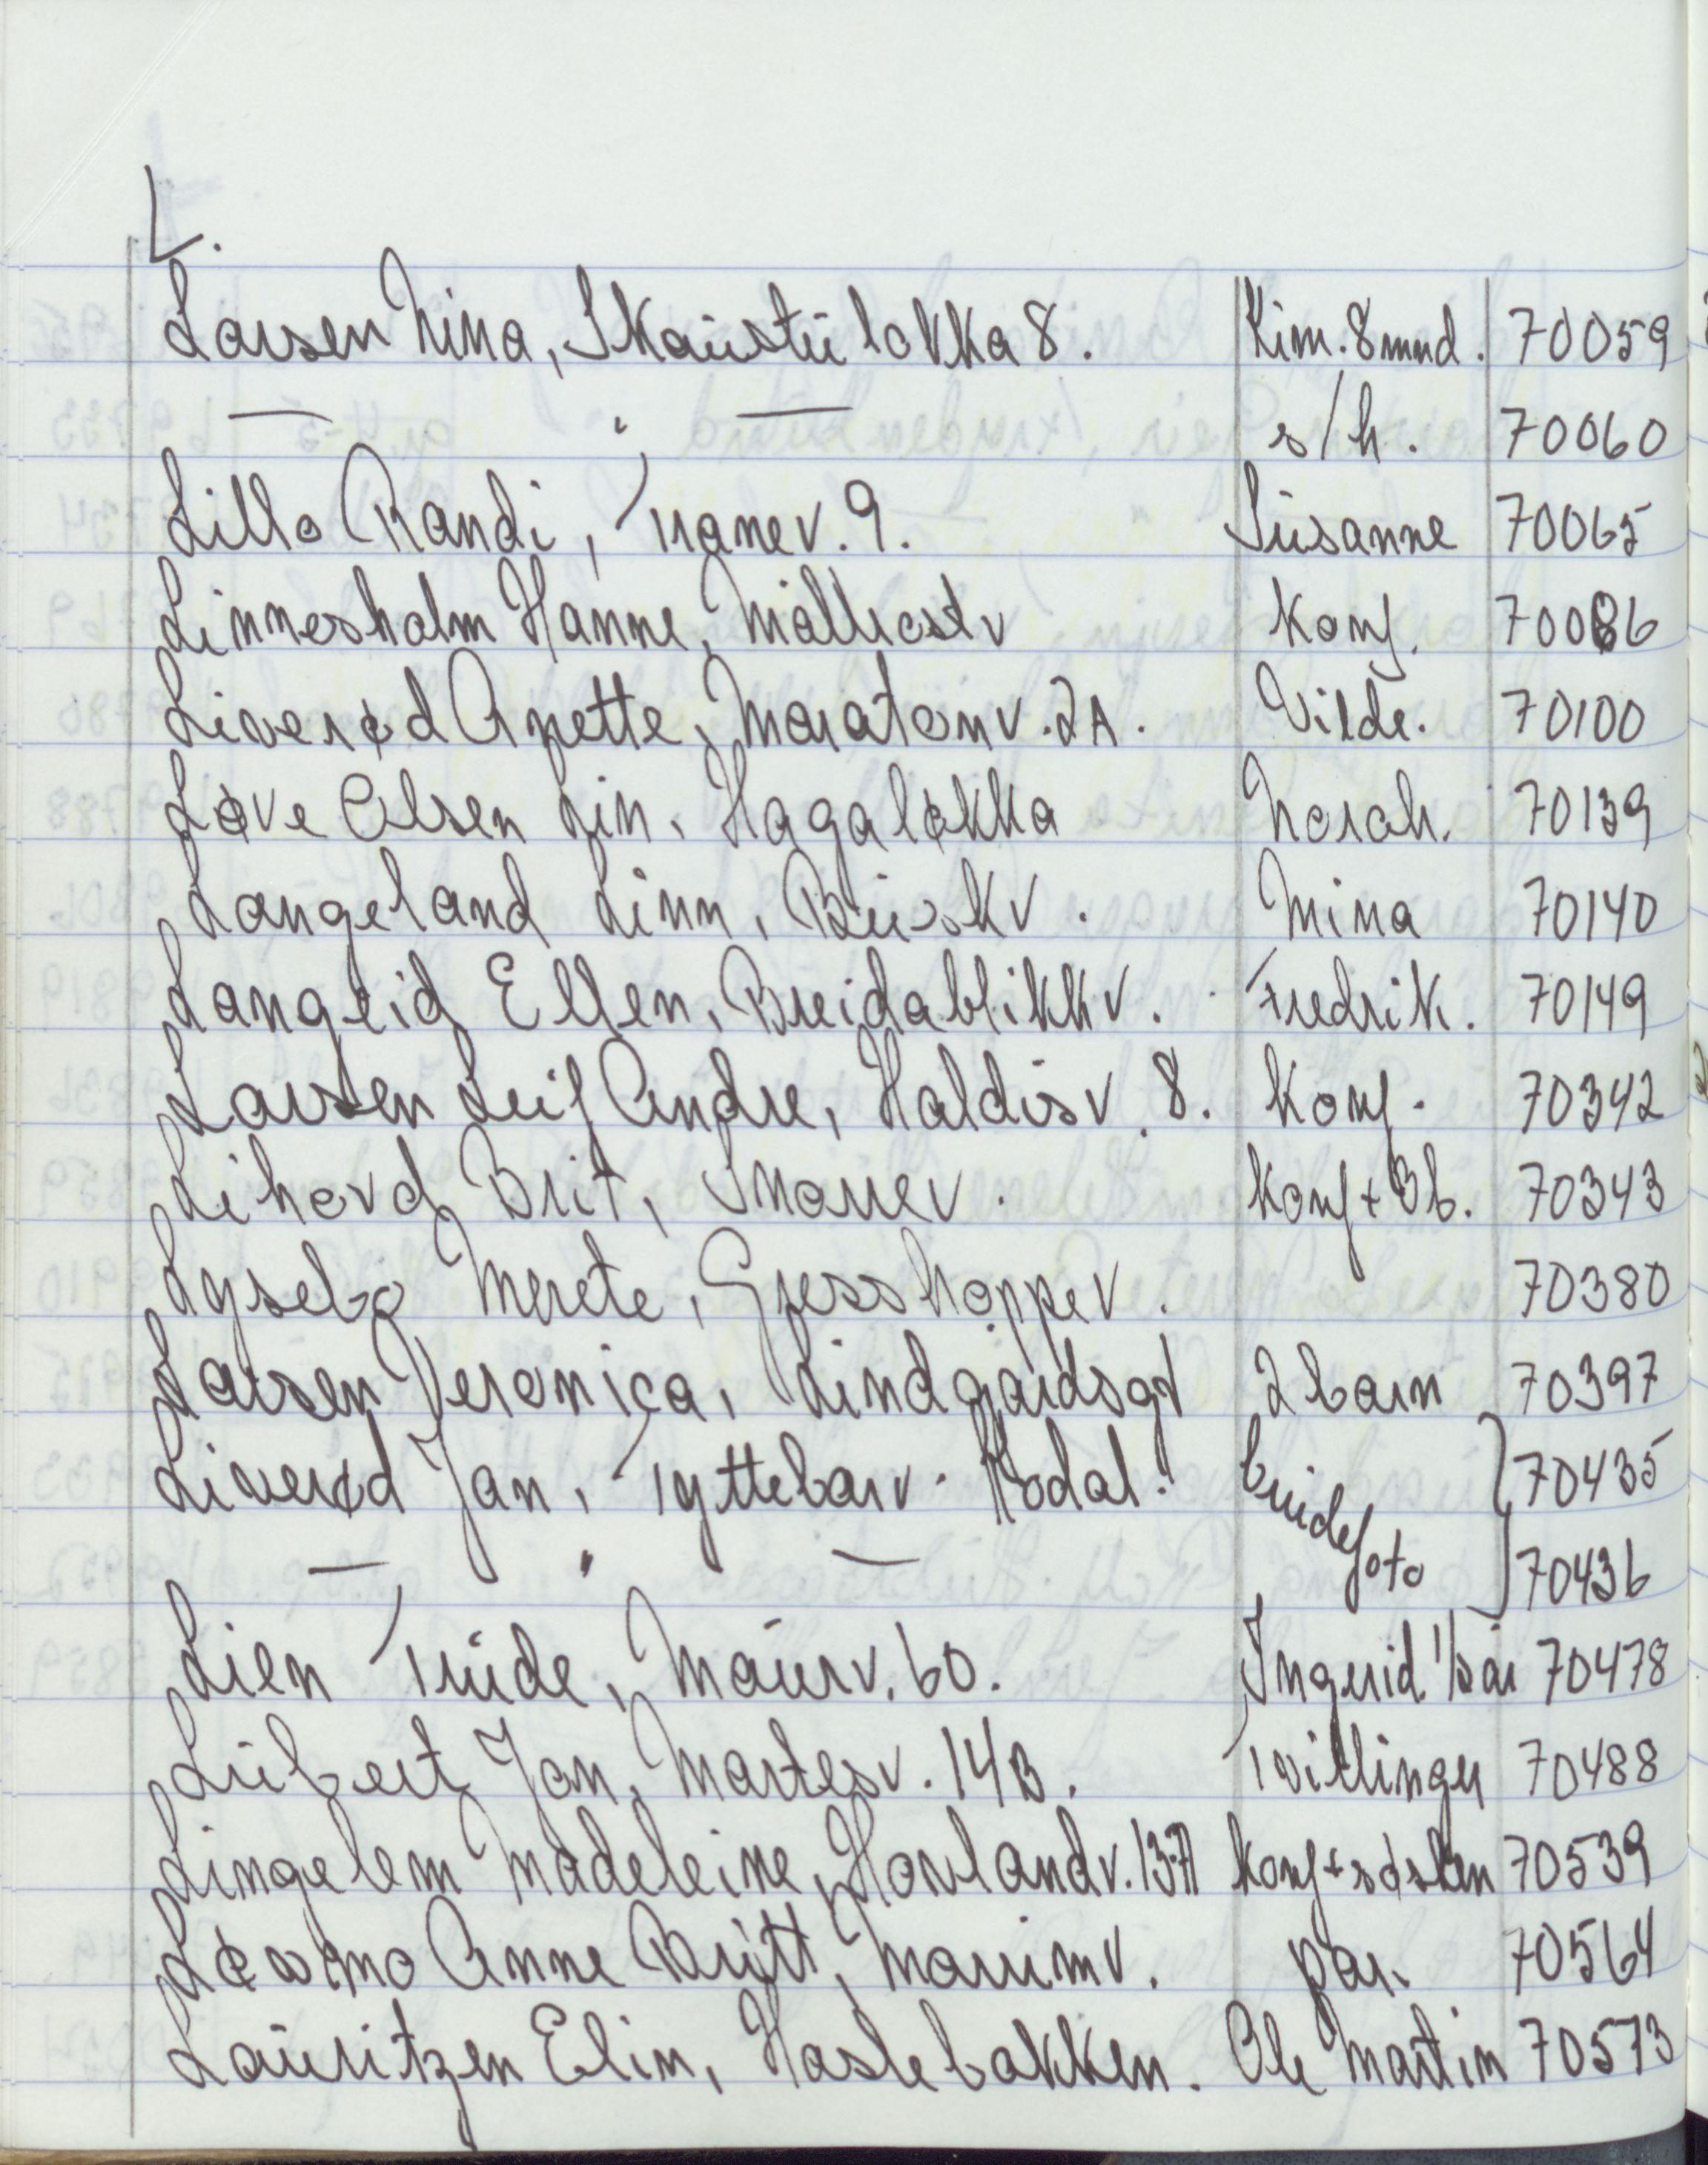 L.
Larsen Nina, Skaustuløkka 8. Kim. 8 mnd. 70059
— " — s/h. 70060
Lillo Randi, Tranev. 9. Susanne 70065
Linnesholm Hanne, Konf. 70086
Liverød Anette, Maratonv. 2A. Vilde. 70100
Løve Olsen Lin. Hagaløkka Norah. 70139
Langeland Linn, Buskv. Mina 70140
Langeid Ellen, Breidablikkv. Fredrik. 70149
Larsen Leif Andre, Haldisv. 8. Konf. 70342
Lihovd Brit, Snorrev. Konf + Bb. 70343
Lysebo Merete, Gresshoppev. 70380
Larsen Veronica, Lindgårdsgt 2 barn 70397
Liverød Jan, Tyttebærv. Kodal. brudefoto 70435
— " — 70436
Lien Trude, Maurv. 60. Ingerid 1/2 år 70478
Lübert Jan, Martesv. 14B. Tvillinger 70488
Lingelem Madeleine, Hovlandv. 137 konf + søsken 70539
Løssmo Anne Britt, Marumv. par. 70564
Lauritzen Elin, Haslebakken. Ole Martin 70573